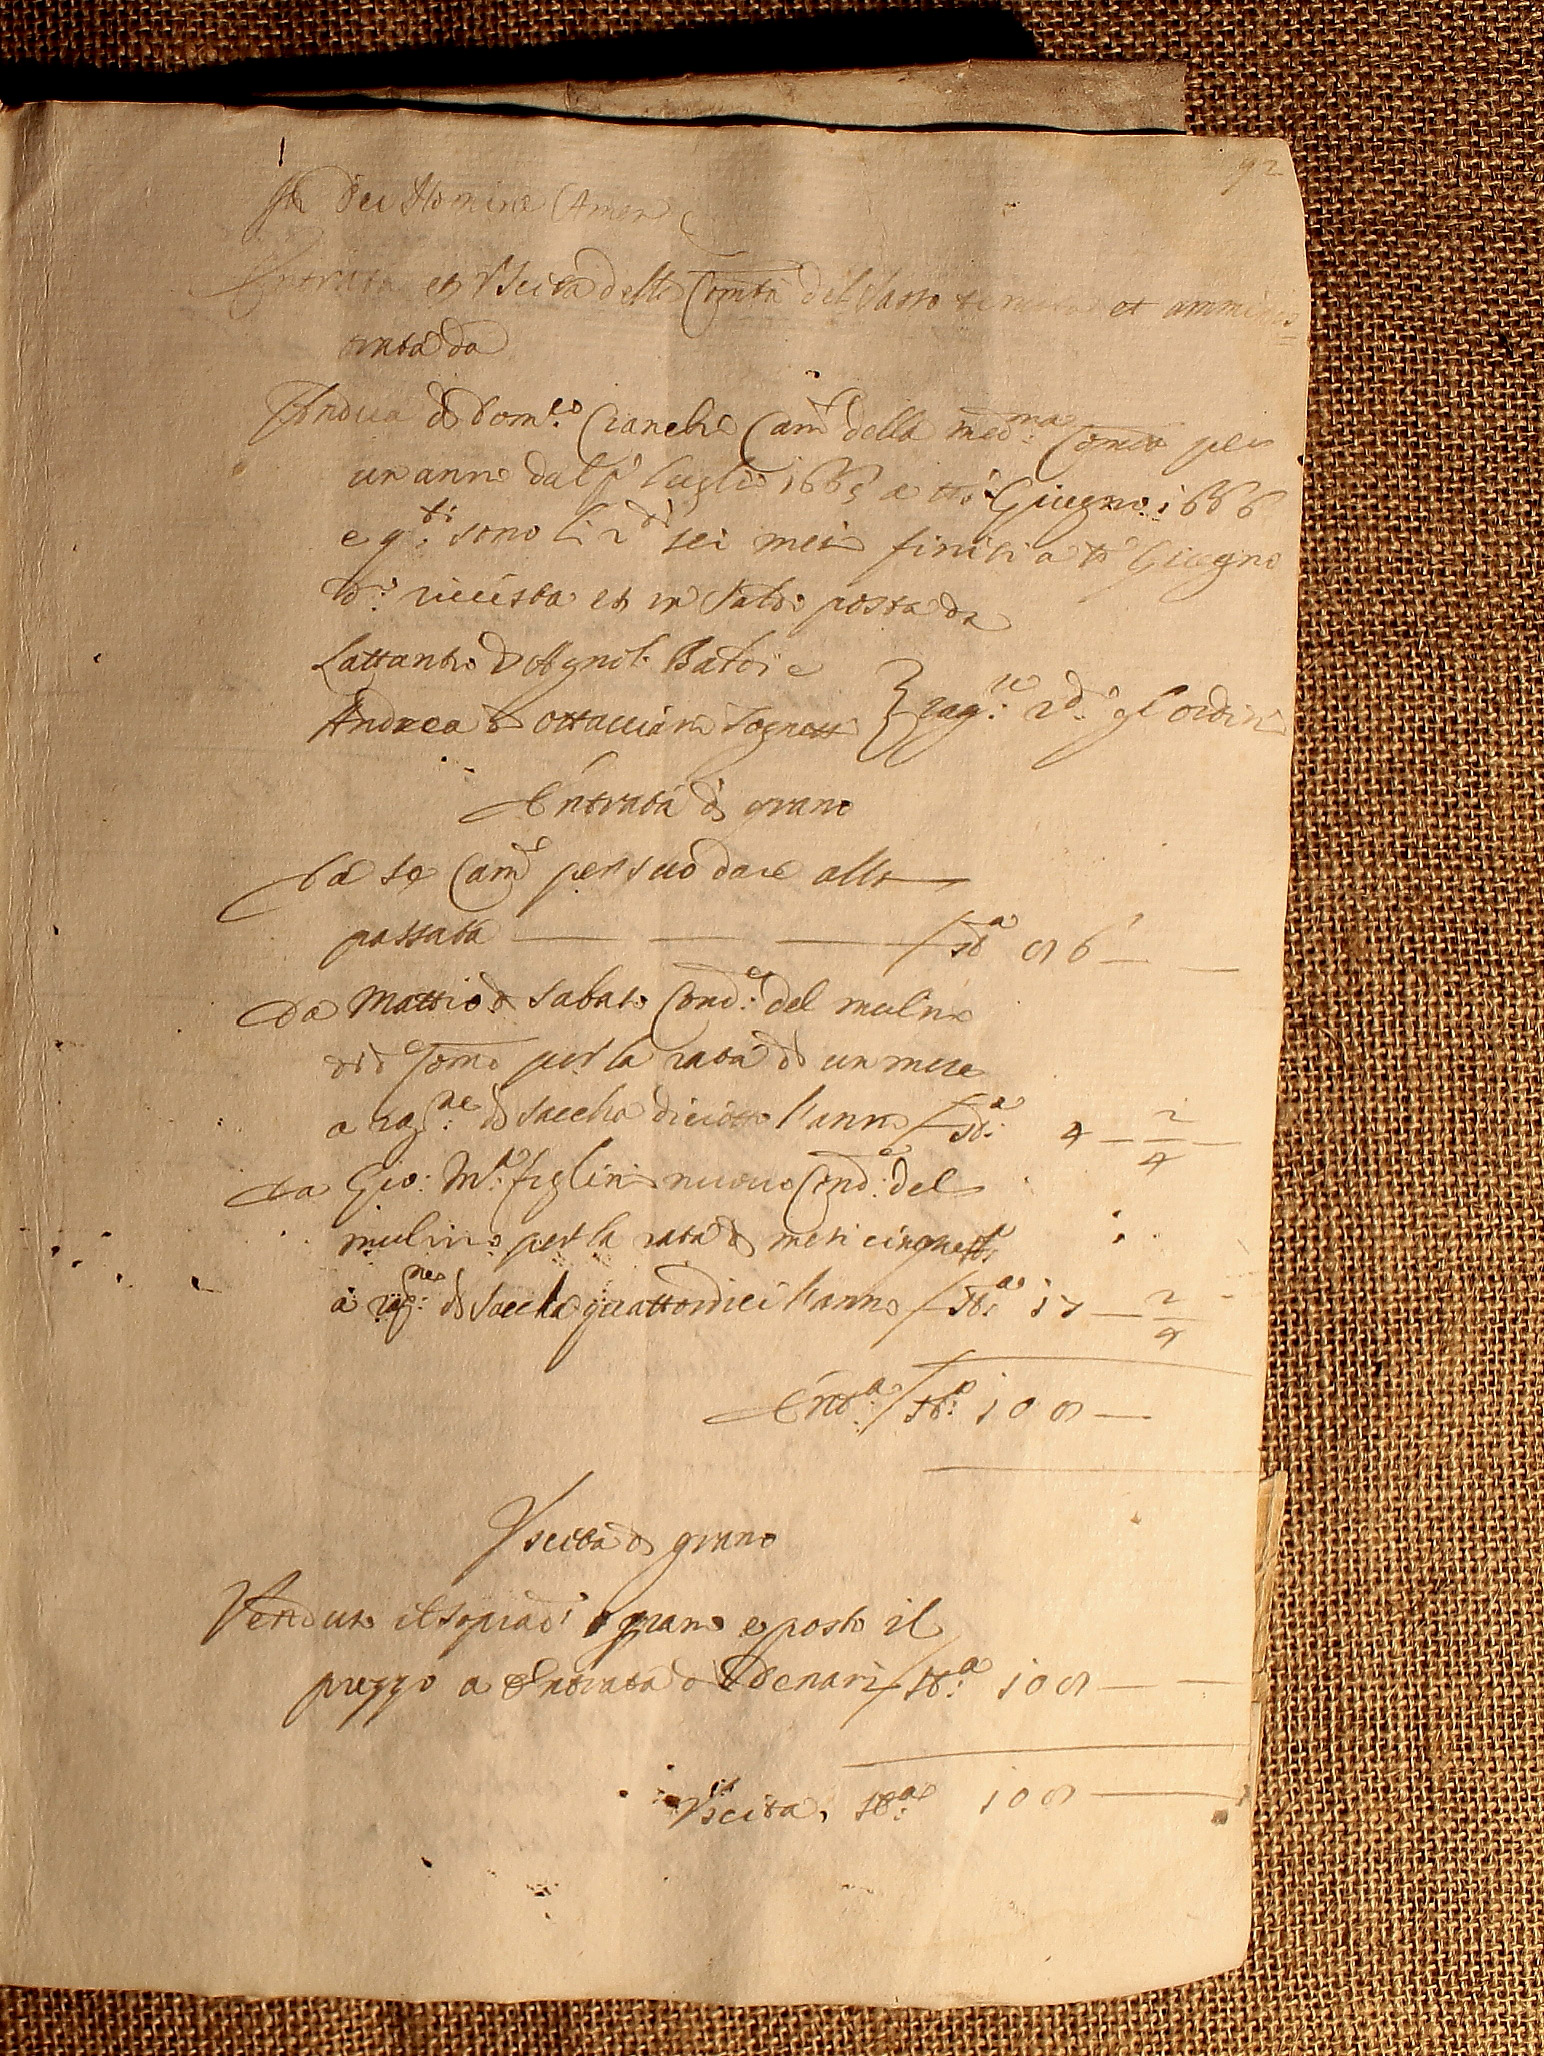 92
In Dei Nomine Amen
Entrata et Vscita della Comtà del Sasso tenuta et amminis=
trata da
Andrea di Dom.co Cianchi Cam.o della med.ma Comtà per
un anno dal p.o Luglio 1665 a tt.o Giugno 1666
e q.ti sono li 2.di sei mesi finiti a tt.o Giugno
d.o riuista et in saldo posta da
Lattantio d'Agnol. Baldi e
Andrea di Ottauiano Tognetti } rag.ri 2.do gl'ordini
Entrata di grano
Da se Cam.o per suo dare alla
passata — — — st.a 86 —
Da Mattio di Sabato Cond.e del mulino
di d.o Comne per la rata di un mese
a rag.ne di sacchа diciotto l'anno st.a 4 — 2/4 —
Da Gio: M.a figlini nuouo Cond.e del
mulino per la rata di mesi cinque
a rag.ne di saccha quattordici l'anno st.a 17 — 2/4
Ent.a st.a 108 —
Vscita di grano
Venduto il soprad.o grano e posto il
prezzo a Entrata di denari st.a 108 — —
Vscita, st.a 108 —